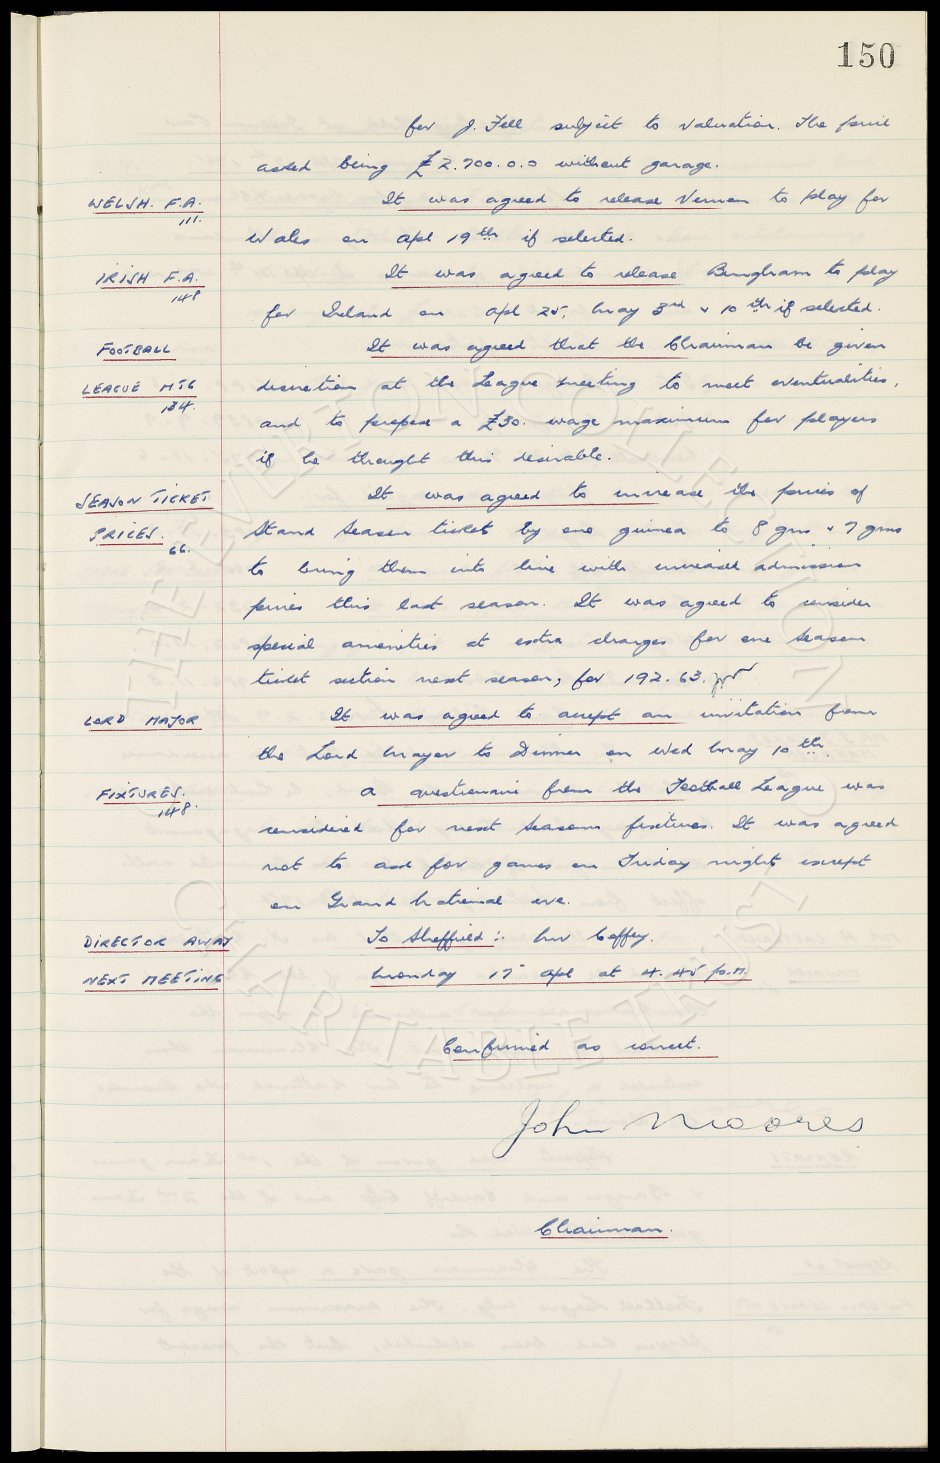 150
for J. Fell subject to valuation. The price
asked being £2.700.0.0 without garage.
WELSH. F.A. It was agreed to release Vernon to play for
111.
Wales on Apl 19th if selected.
IRISH F.A. It was agreed to release Bingham to play
148
for Ireland on Apl 25, May 3rd & 10th if selected.
FOOTBALL It was agreed that the Chairman be given
LEAGUE MTG discretion at the League meeting to meet eventualities,
134.
and to propose a £30. wage maximum for players
if he thought this desirable.
SEASON TICKET It was agreed to increase the prices of
PRICES. Stand Season ticket by one guinea to 8 gns & 7 gns
66.
to bring them into line with increased admission
prices this last season. It was agreed to consider
special amenities at extra charges for one season
ticket section next season, for 192.63.
LORD MAJOR It was agreed to accept an invitation from
the Lord Mayor to Dinner on Wed May 10th.
FIXTURES. A questionaire from the Football League was
148.
considered for next seasons fixtures. It was agreed
not to ask for games on Friday nights except
on Grand National eve.
DIRECTOR AWAY To Sheffield:. Mr Coffey.
NEXT MEETING Monday 17" Apl at 4.45 p.m.
Confirmed as correct.
John Moores
Chairman.
THE EVERTON COLLECTION
CHARITABLE TRUST